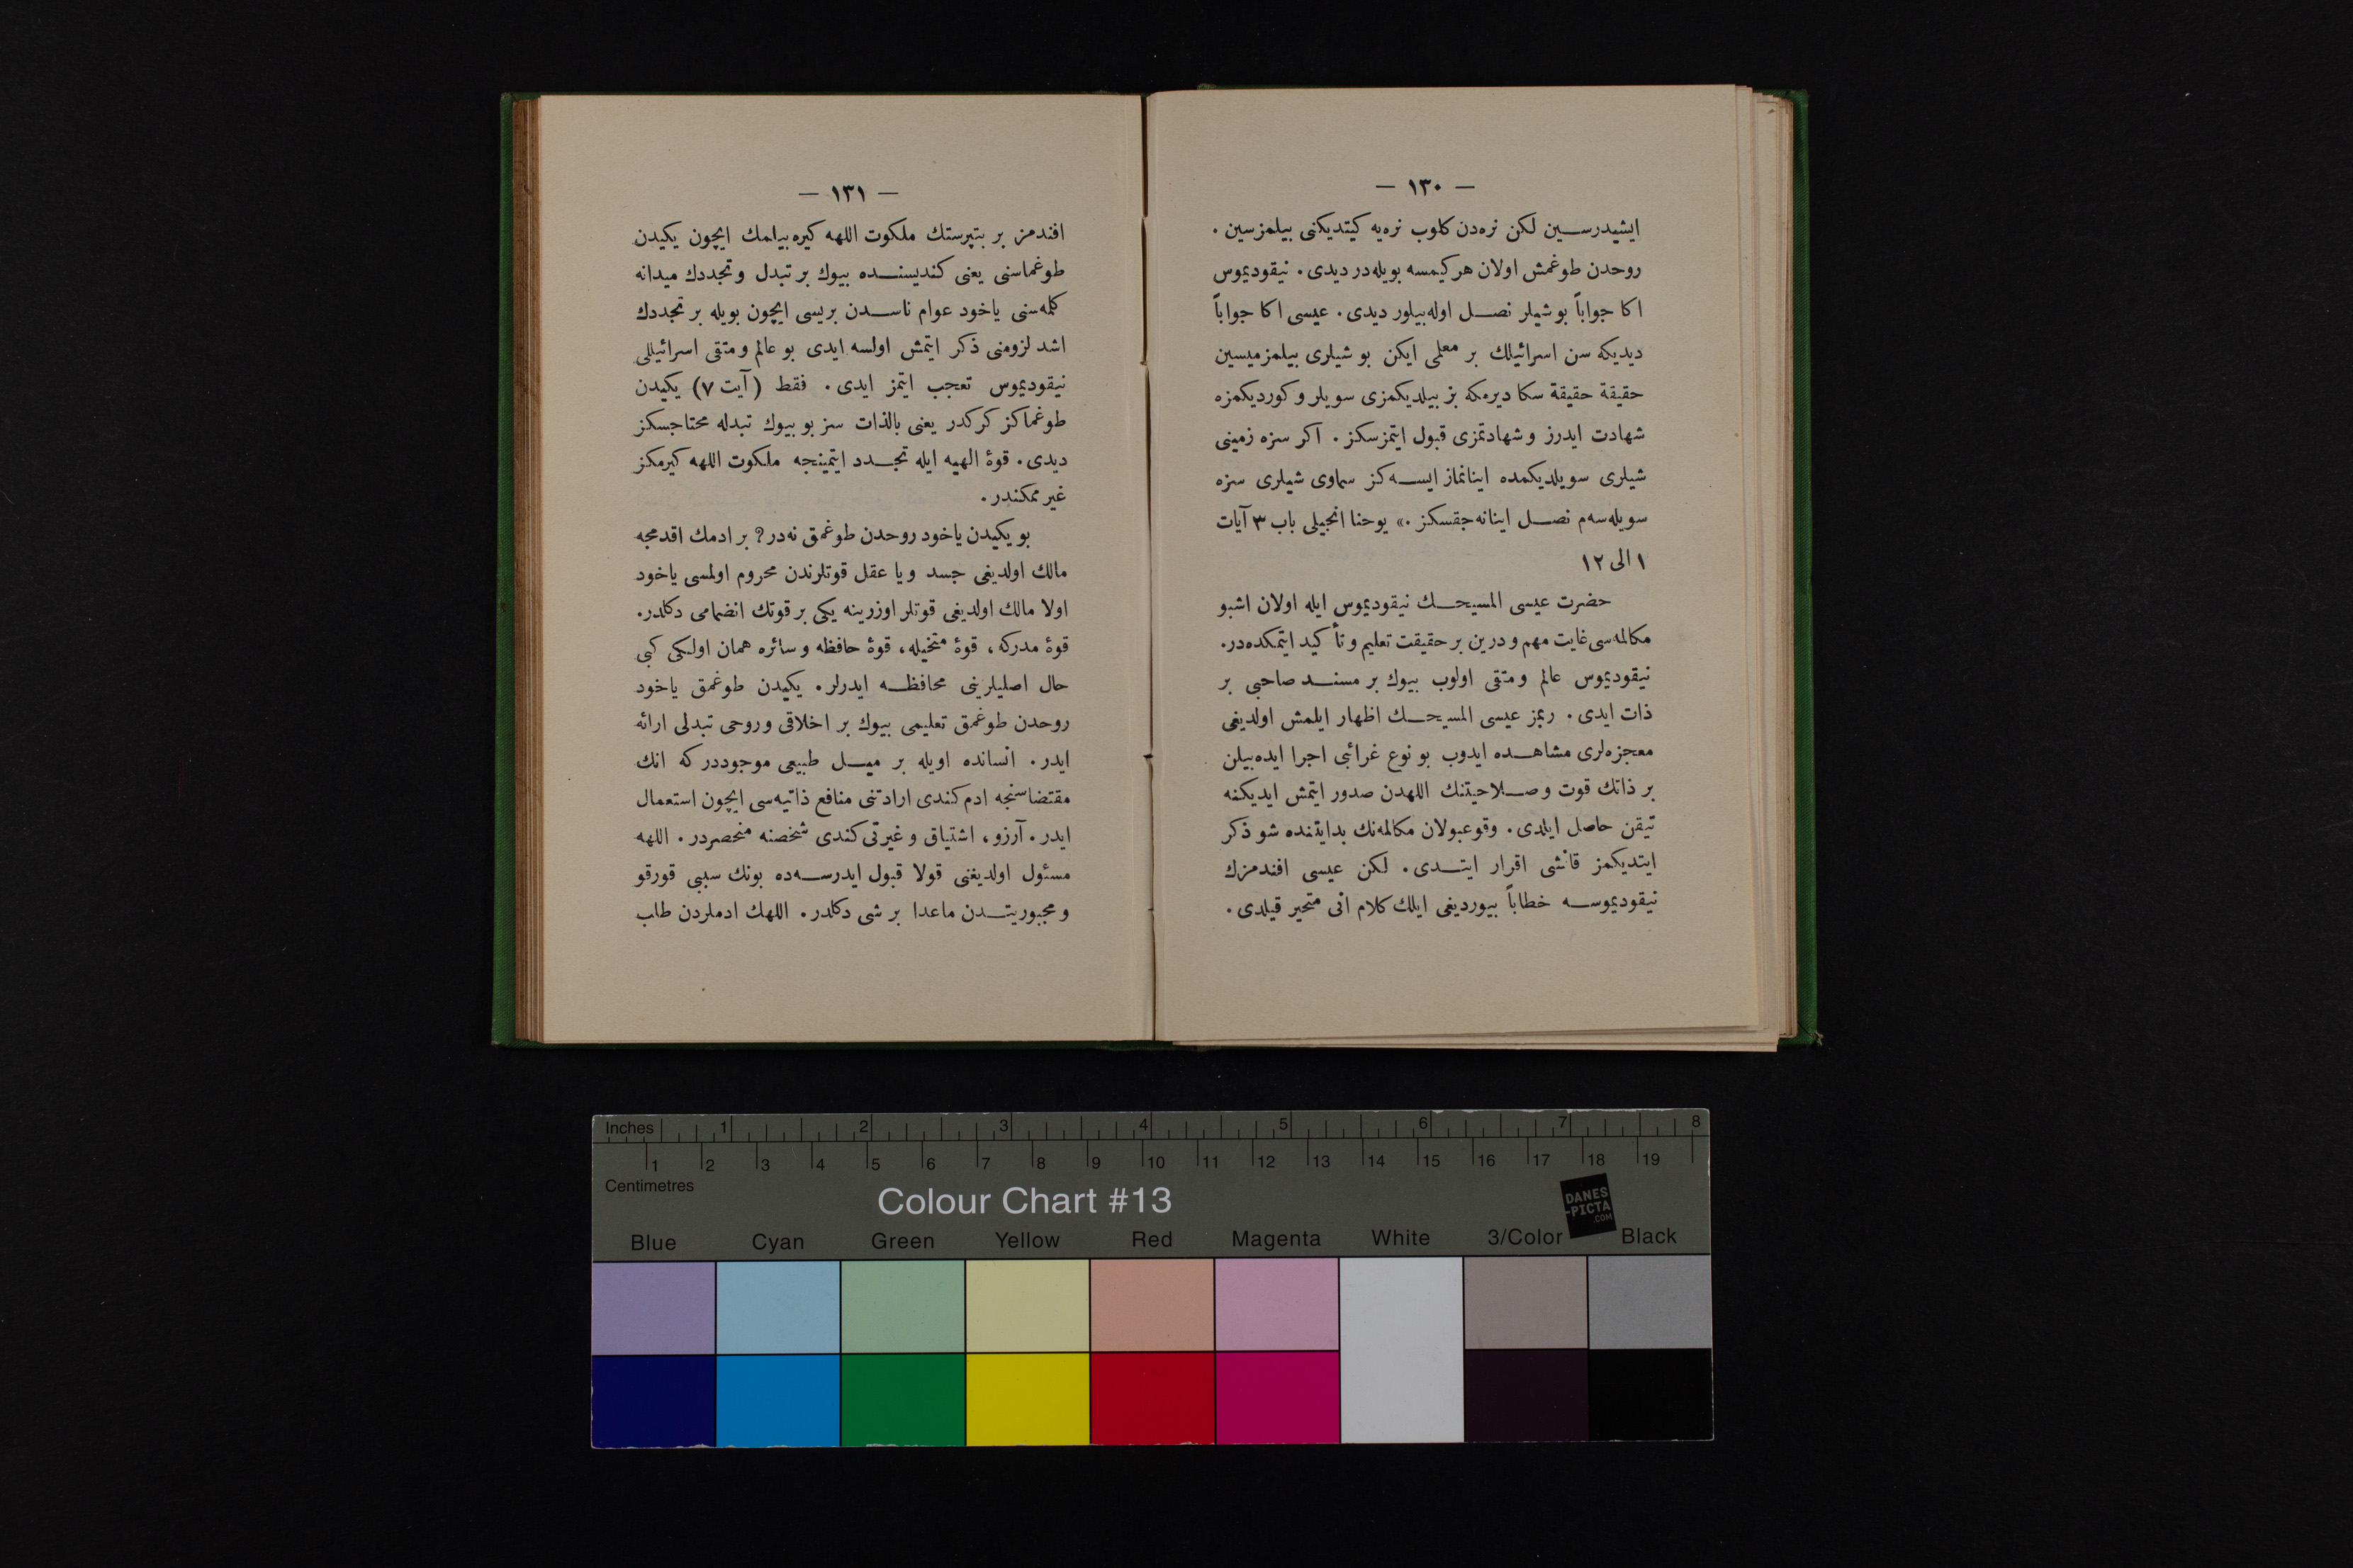 — ١٣٠ —
ايشيدرسين لكن نره‌دن كلوب نره‌يه كيتديكنى بيلمزسين .
روحدن طوغمش اولان هر كيمسه بويله‌در ديدى . نيقوديموس
اكا جواباً بو شيلر نصل اوله‌بيلور ديدى . عيسى اكا جواباً
ديديكه سن اسرائيلك بر معلمى ايكن بو شيلرى بيلمزميسين
حقيقة حقيقة سكا ديرمكه بز بيلديكمزى سويلر و كورديكمزه
شهادت ايدرز و شهادتمزى قبول ايتمزسكز . اكر سزه زمينى
شيلرى سويلديكمده اينانماز ايسه‌كز سماوى شيلرى سزه
سويله‌سه‌م نصل اينانه‌جقسكز .» يوحنا انجيلى باب ٣ آيات
١ الى ١٢
حضرت عيسى المسيحك نيقوديموس ايله اولان اشبو
مكالمه‌سى غايت مهم و درين بر حقيقت تعليم و تأكيد ايتمكده‌در.
نيقوديموس عالم و متقى اولوب بيوك بر مسند صاحبى بر
ذات ايدى . ربمز عيسى المسيحك اظهار ايلمش اولديغى
معجزه‌لرى مشاهده ايدوب بو نوع غرائبى اجرا ايده‌بيلن
بر ذاتك قوت و صلاحيتنك اللهدن صدور ايتمش ايديكنه
تيقن حاصل ايلدى . وقوعبولان مكالمه‌نك بدايتنده شو ذكر
ايتديكمز قانشى اقرار ايتدى . لكن عيسى افندمزك
نيقوديموسه خطاباً بيورديغى ايلك كلام انى متحير قيلدى .
— ١٣١ —
افندمز بر بتپرستك ملكوت اللهه كيره‌بيلمك ايچون يكيدن
طوغماسنى يعنى كنديسنده بيوك بر تبدل و تجددك ميدانه
كلمه‌سنى ياخود عوام ناسدن بريسى ايچون بويله بر تجددك
اشد لزومنى ذكر ايتمش اولسه ايدى بو عالم و متقى اسرائيللى
نيقوديموس تعجب ايتمز ايدى . فقط (آيت ٧) يكيدن
طوغماكز كركدر يعنى بالذات سز بو بيوك تبدله محتاجسكز
ديدى . قوۀ الهيه ايله تجدد ايتمينجه ملكوت اللهه كيرمكز
غير ممكندر .
بو يكيدن ياخود روحدن طوغمق نه‌در؟ بر ادمك اقدمجه
مالك اولديغى جسد و يا عقل قوتلرندن محروم اولمسى ياخود
اولا مالك اولديغى قوتلر اوزرينه يكى بر قوتك انضمامى دكلدر.
قوۀ مدركه ، قوۀ متخيله ، قوۀ حافظه و سائره همان اولكى كبى
حال اصليلرينى محافظه ايدرلر . يكيدن طوغمق ياخود
روحدن طوغمق تعليمى بيوك بر اخلاقى و روحى تبدلى ارائه
ايدر . انسانده اويله بر ميل طبيعى موجوددر كه انك
مقتضاسنجه ادم كندى ارادتنى منافع ذاتيه‌سى ايچون استعمال
ايدر . آرزو ، اشتياق و غيرتى كندى شخصنه منحصردر . اللهه
مسئول اولديغنى قولا قبول ايدرسه‌ده بونك سببى قورقو
و مجبوريتدن ماعدا بر شى دكلدر . اللهك ادملردن طلب
Inches 1 2 3 4 5 6 7 8
1 2 3 4 5 6 7 8 9 10 11 12 13 14 15 16 17 18 19
Centimetres
Colour Chart #13
DANES
-PICTA
.COM
Blue Cyan Green Yellow Red Magenta White 3/Color Black